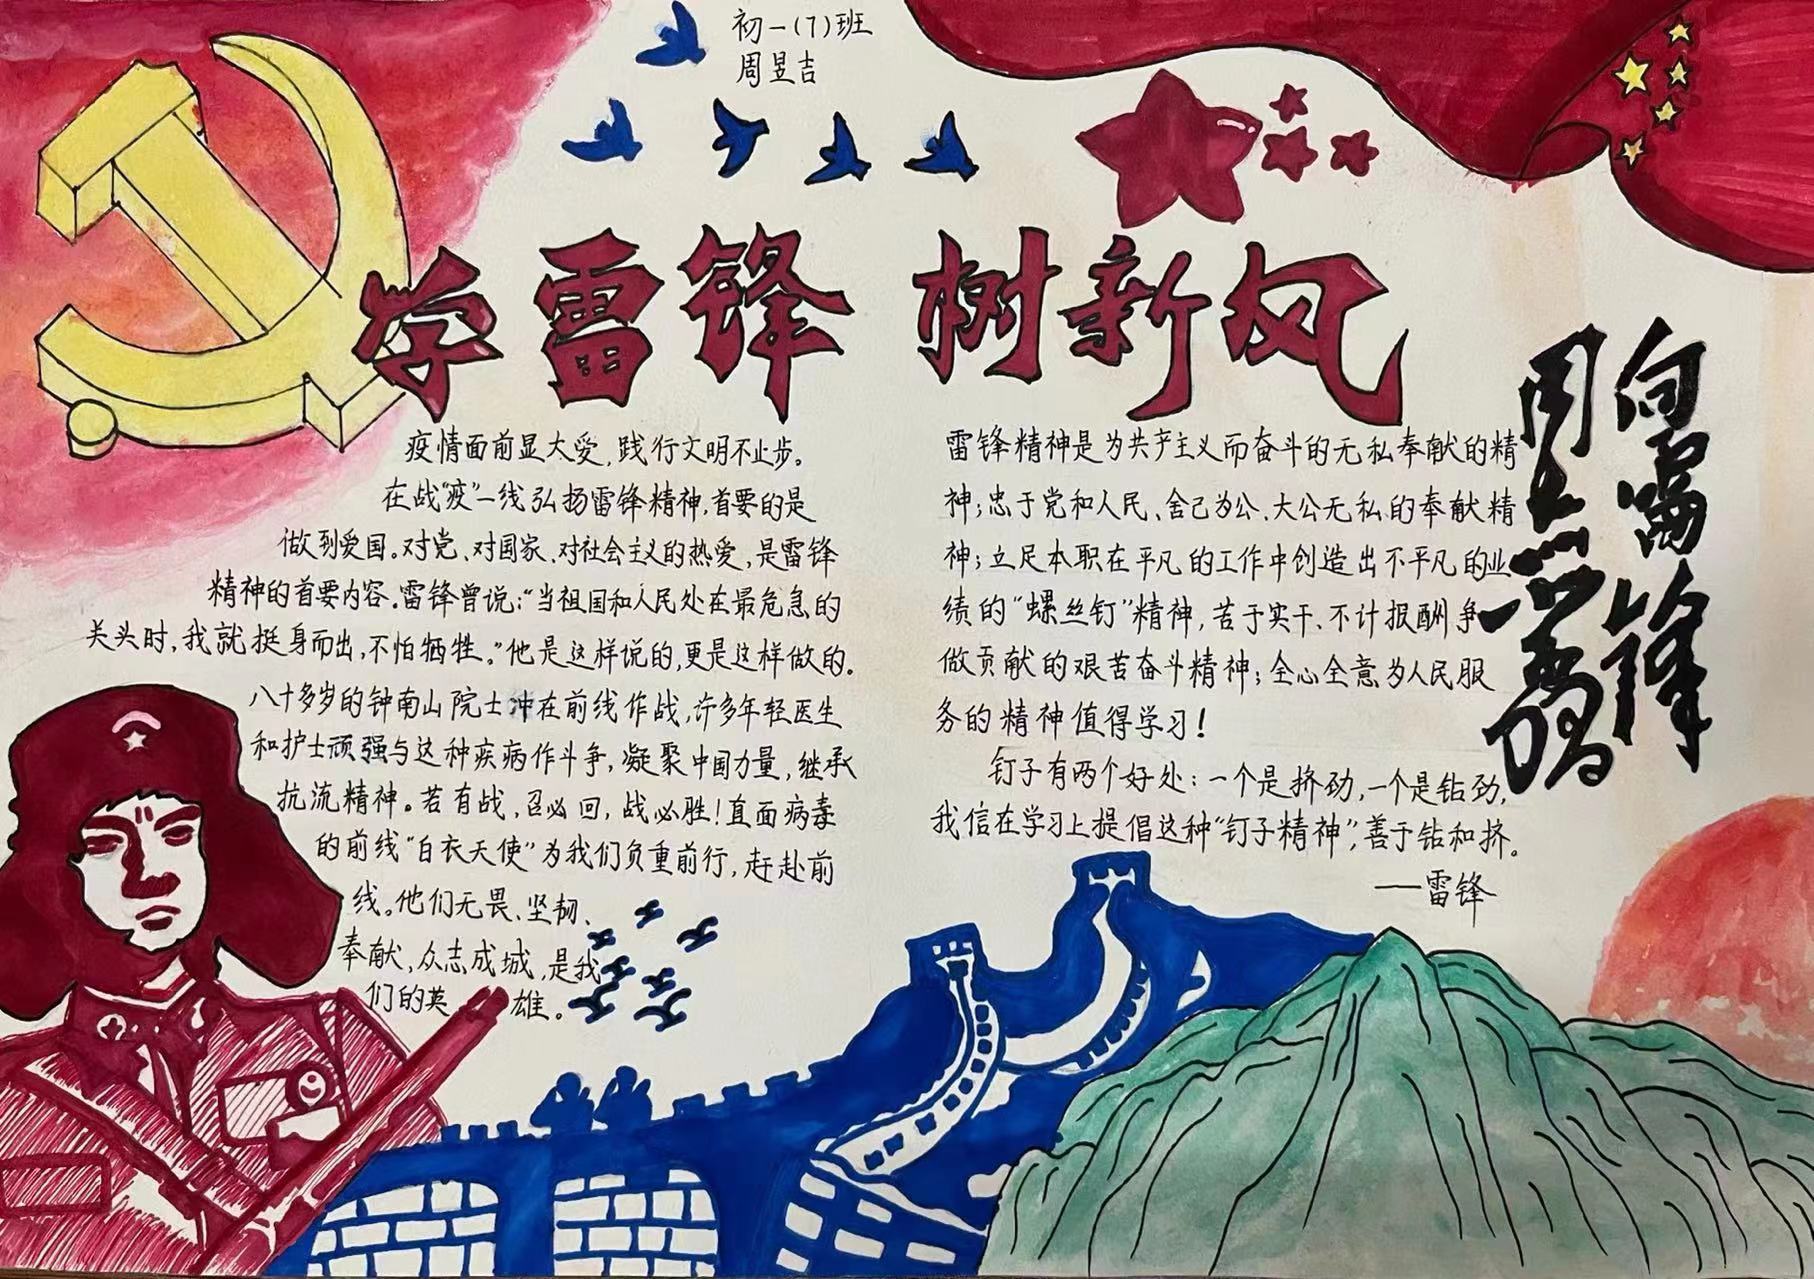 初一(7)班
周昱吉
学雷锋 树新风
疫情面前显大爱，践行文明不止步。
在战“疫”一线弘扬雷锋精神，首要的是
做到爱国。对党、对国家、对社会主义的热爱，是雷锋
精神的首要内容。雷锋曾说：“当祖国和人民处在最危急的
关头时，我就挺身而出，不怕牺牲。”他是这样说的，更是这样做的。
八十多岁的钟南山院士冲在前线作战，许多年轻医生
和护士顽强与这种疾病作斗争，凝聚中国力量，继承
抗流精神。若有战，召必回，战必胜！直面病毒
的前线“白衣天使”为我们负重前行，赶赴前
线。他们无畏、坚韧、
奉献，众志成城，是我
们的英雄。
雷锋精神是为共产主义而奋斗的无私奉献的精
神；忠于党和人民、舍己为公、大公无私的奉献精
神；立足本职在平凡的工作中创造出不平凡的业
绩的“螺丝钉”精神，苦于实干、不计报酬争
做贡献的艰苦奋斗精神；全心全意为人民服
务的精神值得学习！
钉子有两个好处：一个是挤劲，一个是钻劲，
我信在学习上提倡这种“钉子精神”，善于钻和挤。
——雷锋
向雷锋
同志学习